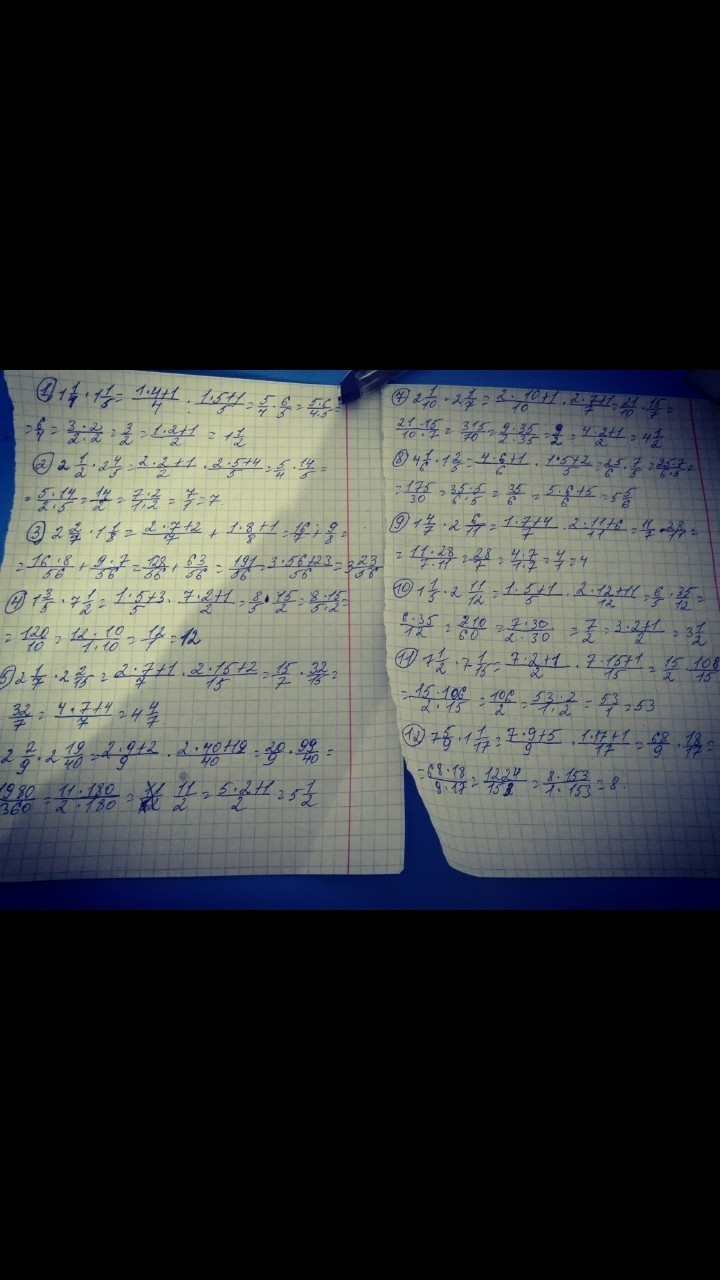 ① 1 1/4 · 1 1/5 = 1·4+1/4 · 1·5+1/5 = 5/4 · 6/5 = 5·6/4·5 =
= 6/4 = 3·2/2·2 = 3/2 = 1·2+1/2 = 1 1/2
② 2 1/2 · 2 4/5 = 2·2+1/2 · 2·5+4/5 = 5/4 · 14/5 =
= 5·14/2·5 = 14/2 = 7·2/1·2 = 7/1 = 7.
③ 2 2/7 · 1 1/8 = 2·7+2/7 + 1·8+1/8 = 16/7 + 9/8 =
= 16·8/56 + 9·7/56 = 128/56 + 63/56 = 191/56 = 3·56+23/56 = 3 23/56.
④ 1 3/5 · 7 1/2 = 1·5+3/5 · 7·2+1/2 = 8/5 · 15/2 = 8·15/5·2 =
= 120/10 = 12·10/1·10 = 12/1 = 12
5) 2 1/7 · 2 2/15 = 2·7+1/7 · 2·15+2/15 = 15/7 · 32/15 =
32/7 = 4·7+4/7 = 4 4/7
2 2/9 · 2 19/40 = 2·9+2/9 · 2·40+19/40 = 20/9 · 99/40 =
1980/360 = 11·180/2·180 = 11/2 = 5·2+1/2 = 5 1/2
⑦ 2 1/10 · 2 1/7 = 2·10+1/10 · 2·7+1/7 = 21/10 · 15/7 =
21·15/10·7 = 315/70 = 9·35/2·35 = 9/2 = 4·2+1/2 = 4 1/2
⑧ 4 1/6 · 1 2/5 = 4·6+1/6 · 1·5+2/5 = 25/6 · 7/5 = 25·7/6·5 =
= 175/30 = 35·5/6·5 = 35/6 = 5·6+5/6 = 5 5/6
⑨ 1 4/7 · 2 6/11 = 1·7+4/7 · 2·11+6/11 = 11/7 · 28/11 =
= 11·28/7·11 = 28/7 = 4·7/1·7 = 4/1 = 4
⑩ 1 1/5 · 2 11/12 = 1·5+1/5 · 2·12+11/12 = 6/5 · 35/12 =
6·35/12 = 210/60 = 7·30/2·30 = 7/2 = 3·2+1/2 = 3 1/2
⑪ 7 1/2 · 7 1/15 = 7·2+1/2 · 7·15+1/15 = 15/2 · 106/15
= 15·106/2·15 = 106/2 = 53·2/1·2 = 53/1 = 53
⑫ 7 5/9 · 1 1/17 = 7·9+5/9 · 1·17+1/17 = 68/9 · 18/17 =
= 68·18/9·17 = 1224/153 = 8·153/1·153 = 8.